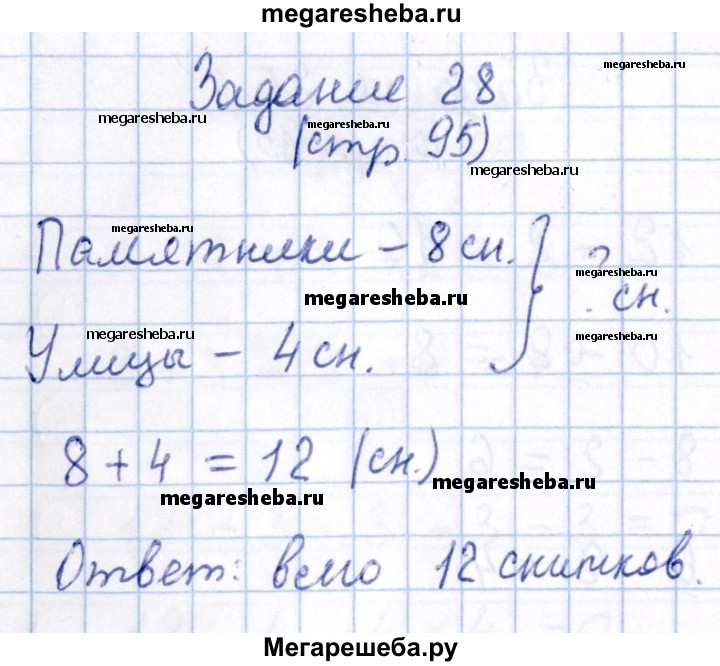 megaresheba.ru
Задание 28
megaresheba.ru
megaresheba.ru
(стр. 95)
megaresheba.ru
megaresheba.ru
megaresheba.ru
Памятники – 8 сн. } ? сн.
megaresheba.ru
megaresheba.ru
megaresheba.ru
Улицы – 4 сн.
8 + 4 = 12 (сн.)
megaresheba.ru
megaresheba.ru
Ответ: всего 12 снимков.
Мегарешеба.ру